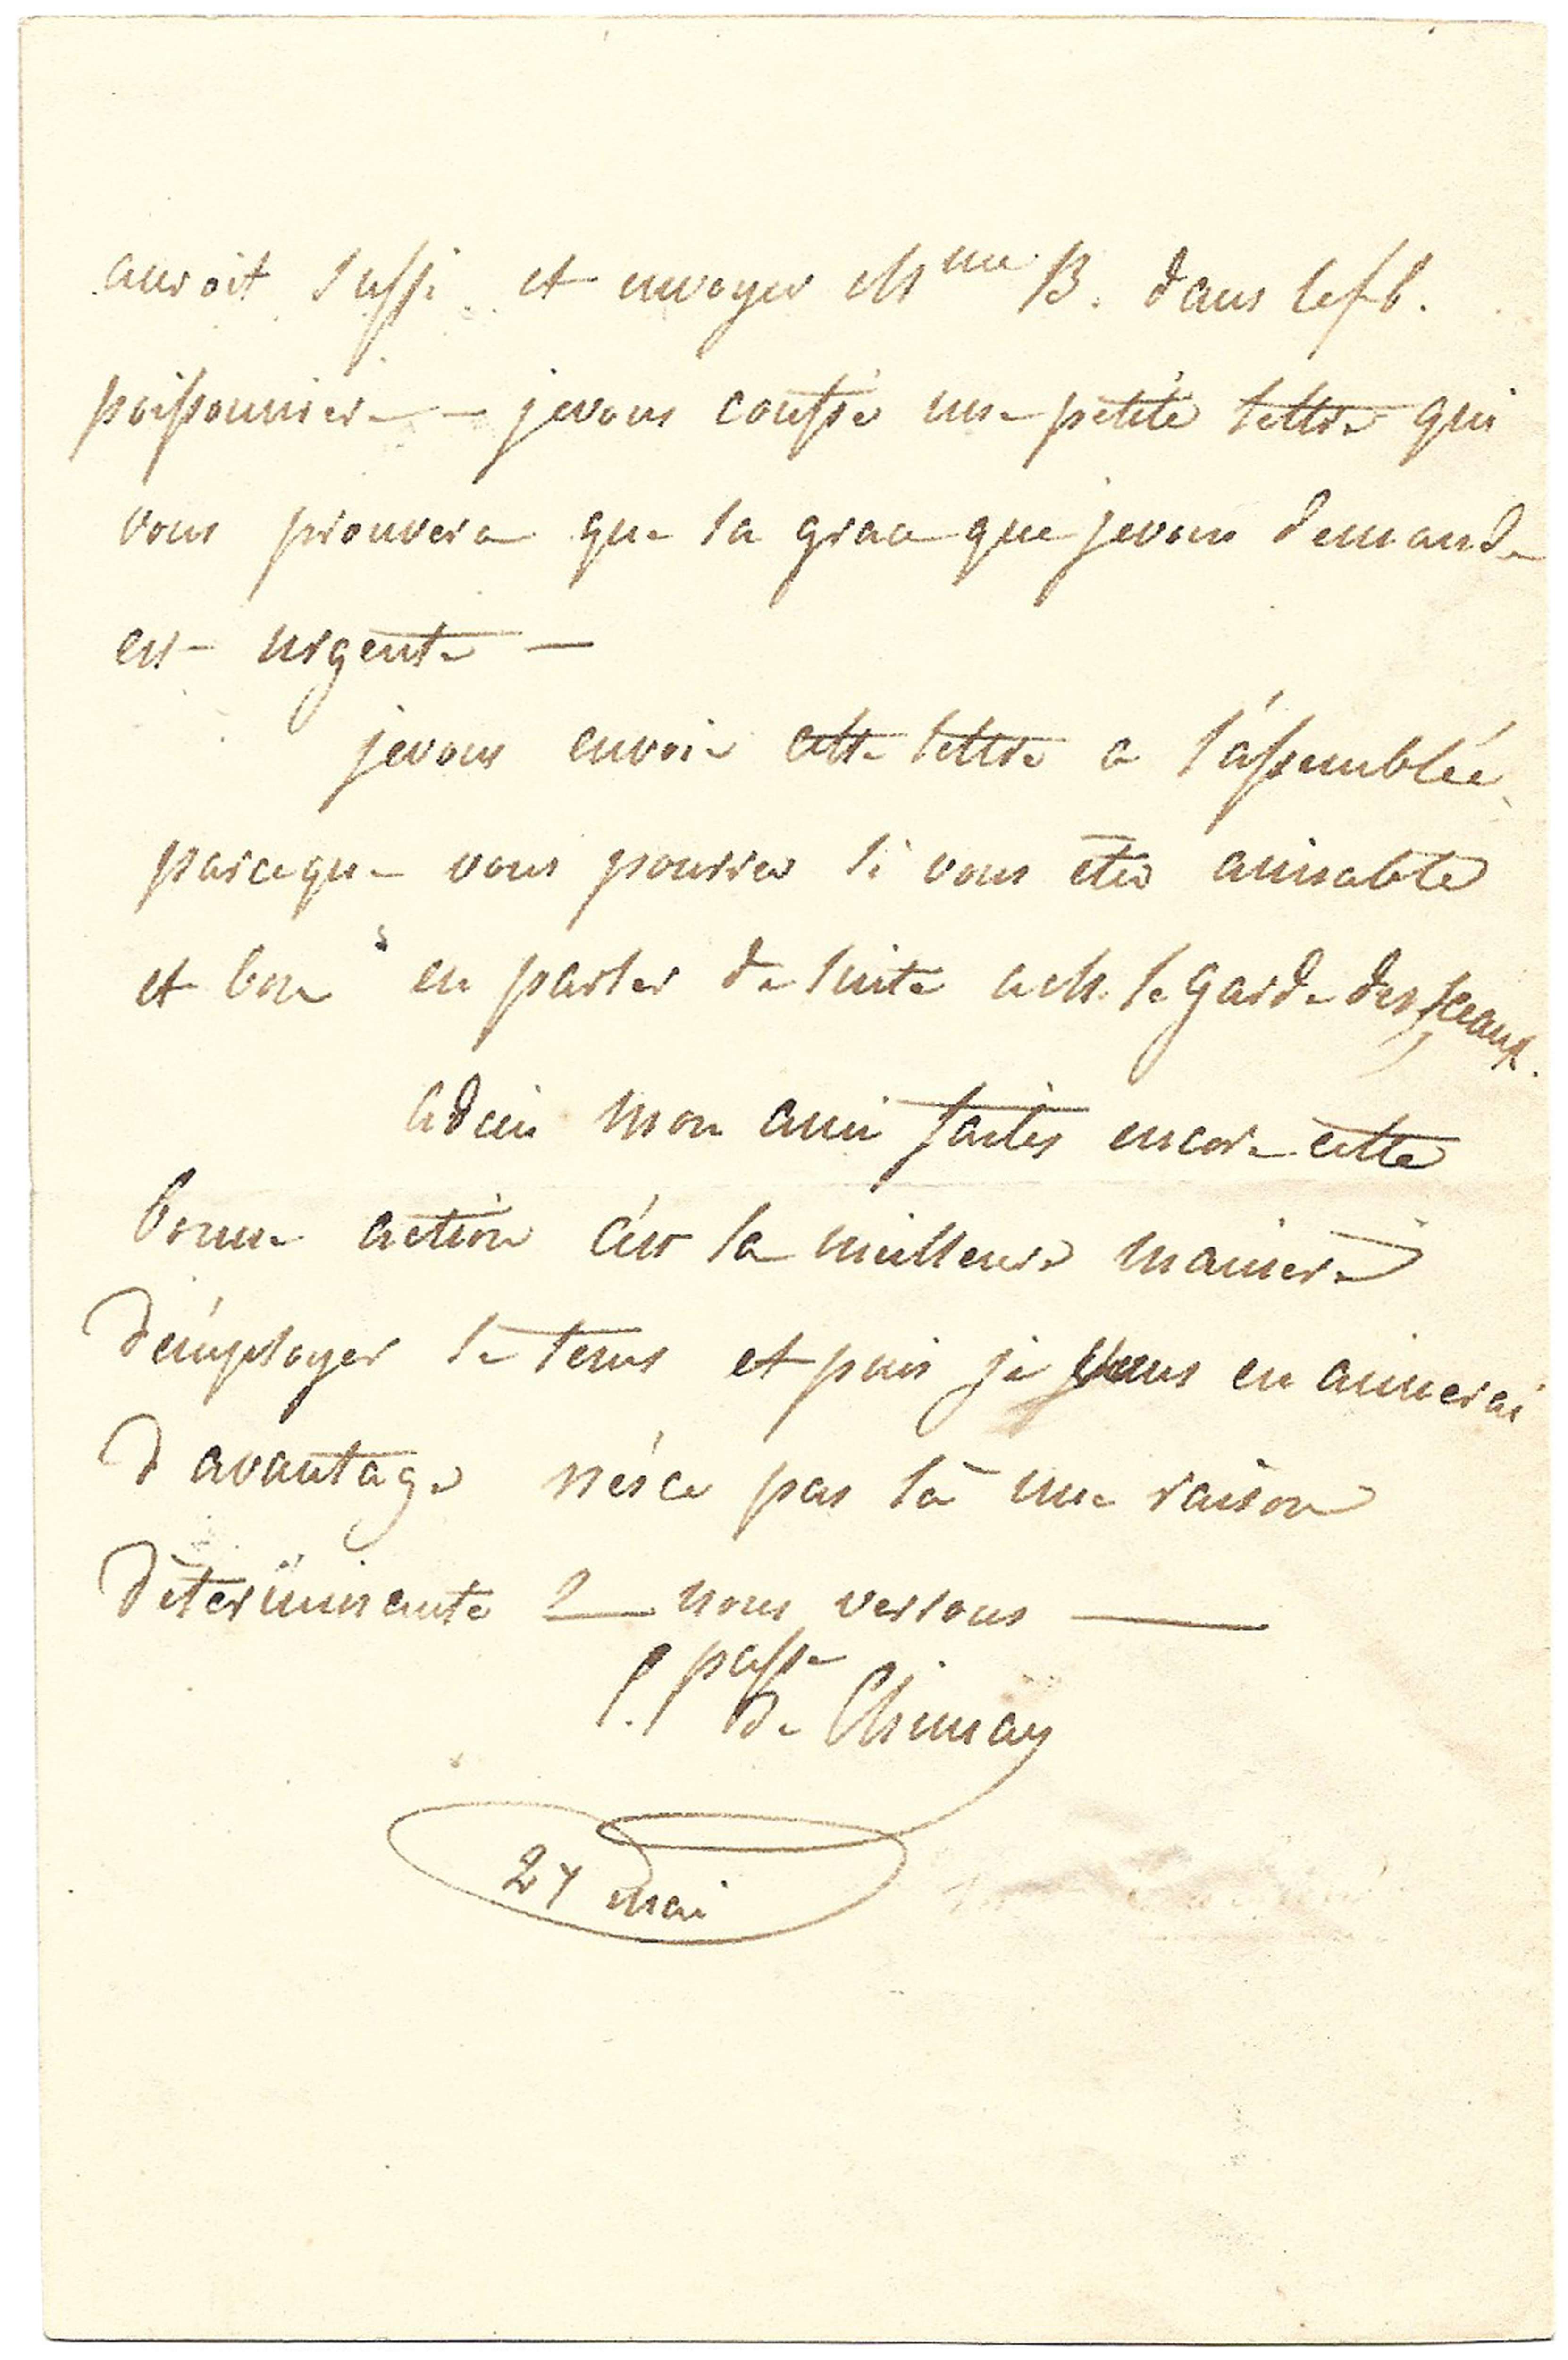 auroit suffi et envoyer Mme B. dans le fb.
poissonniere — je vous confie une petite lettre qui
vous prouvera que la grace que je vous demande
est urgente —
je vous envoie cette lettre a l'assemblée
parceque vous pourrez si vous êtes aimable
et bon en parler de suite a M. le garde des sceaux.
adieu mon ami faites encore cette
bonne action c'est la meilleure maniere
d'employer le tems et puis je vous en aimerai
d'avantage n'ésce pas là une raison
déterminante ? — nous verrons —
P. passe
de Chimay
27 mai